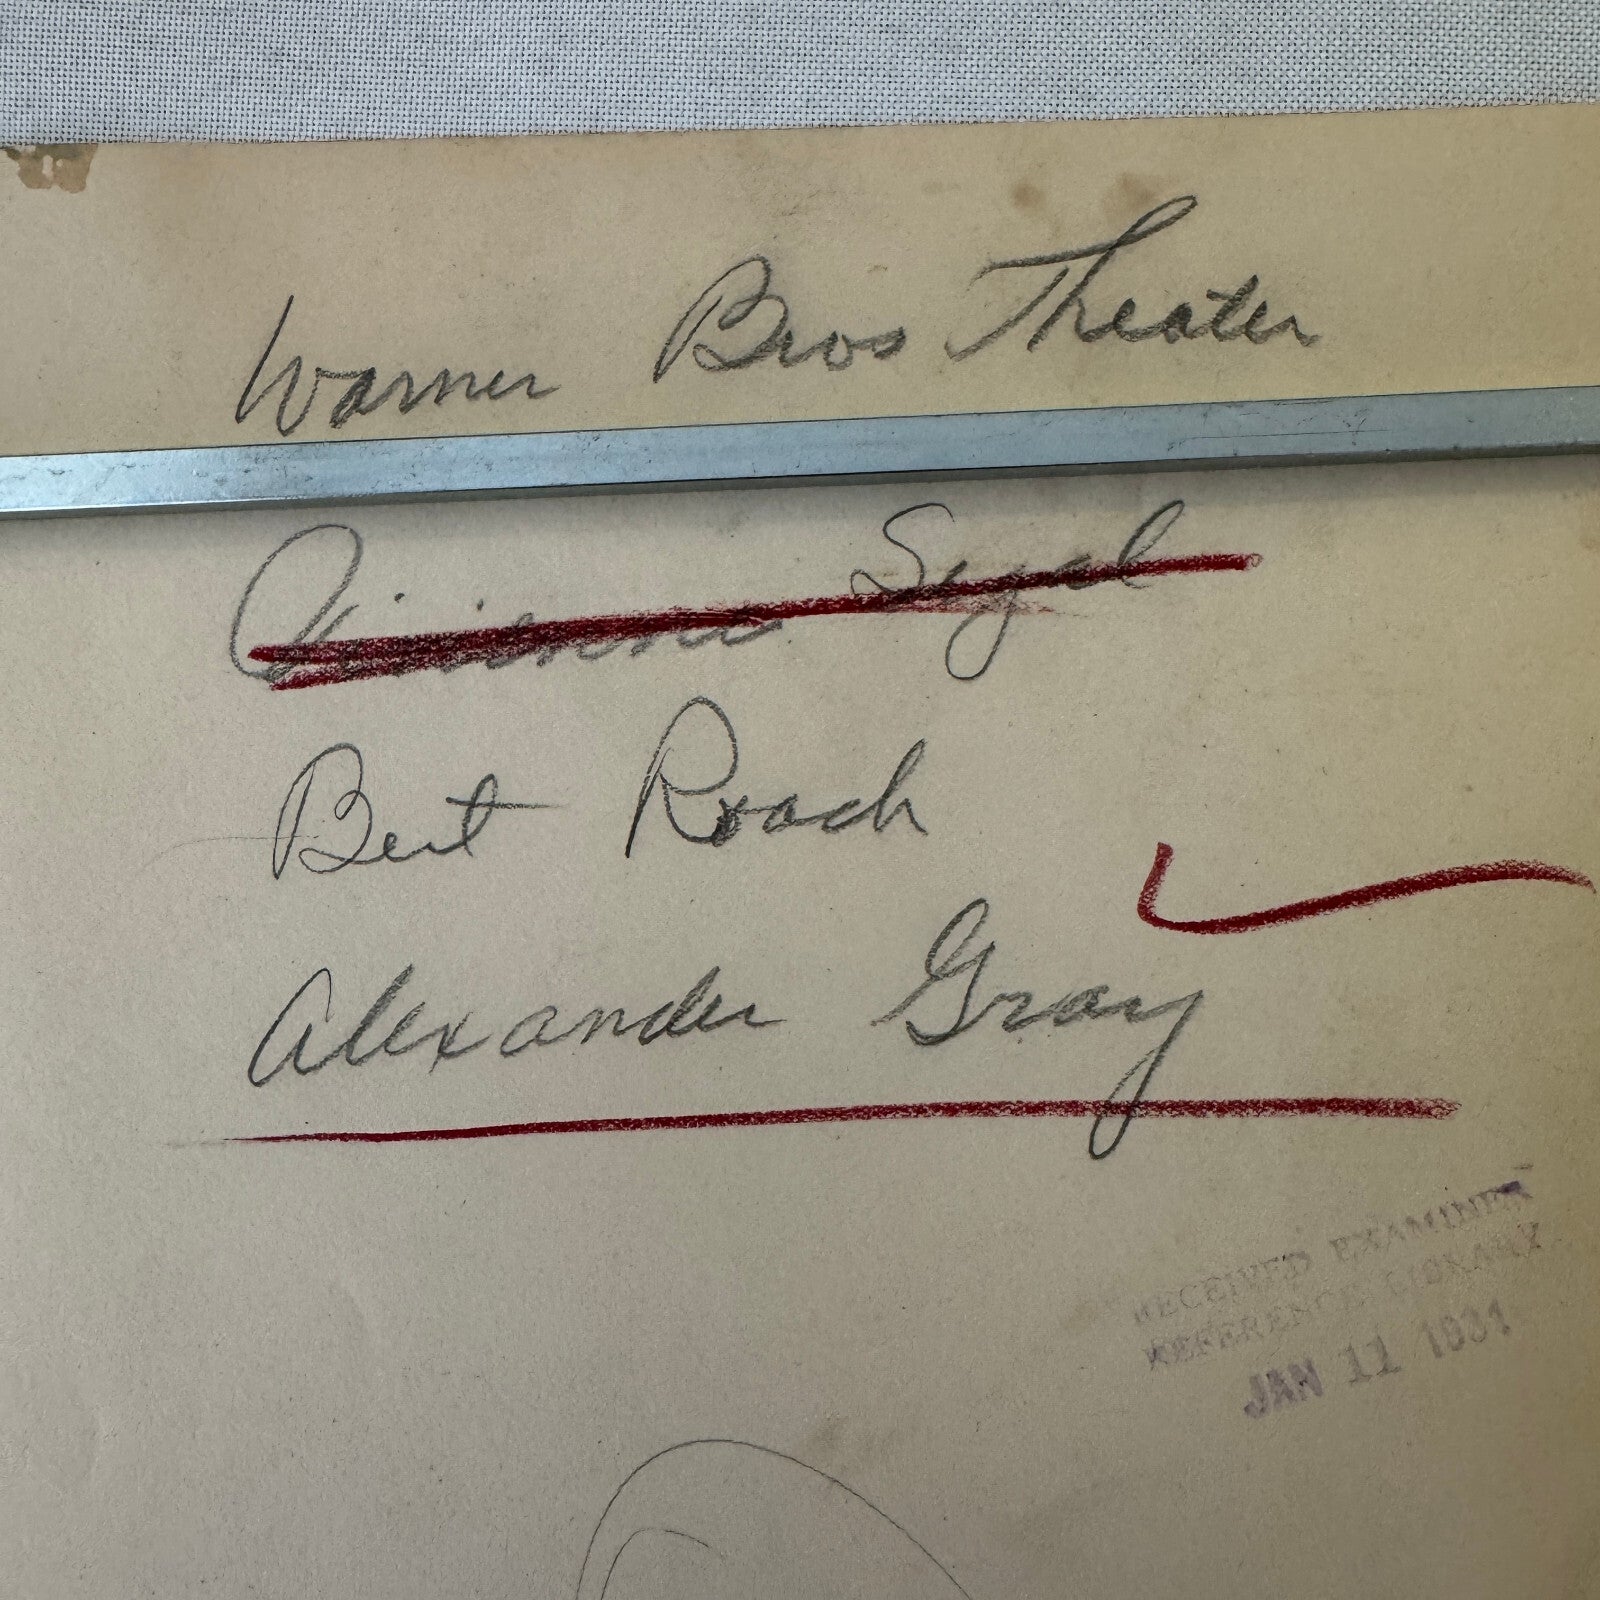 Warner Bros Theater
Vivienne Segal
Bert Roach
Alexander Gray
RECEIVED EXAMINER
REFERENCE LIBRARY
JAN 11 1931